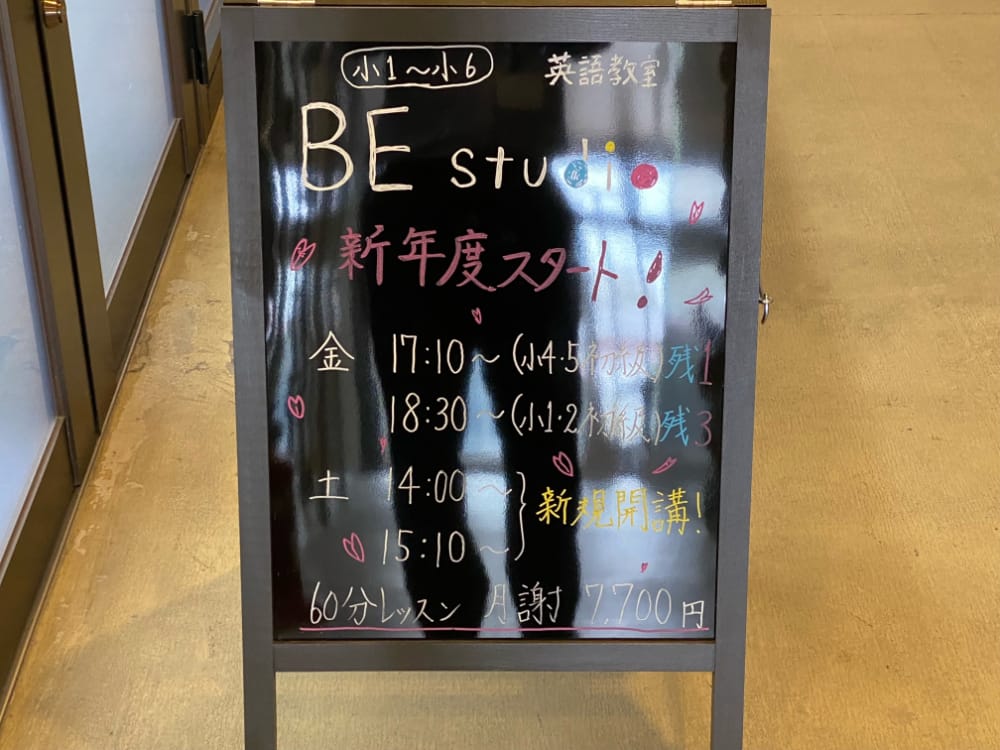 小1～小6 英語教室
BE studio
新年度スタート!
金 17:10～(小4·5初級)残1
18:30～(小1·2初級)残3
土 14:00～
15:10～
新規開講!
60分レッスン 月謝 7,700円